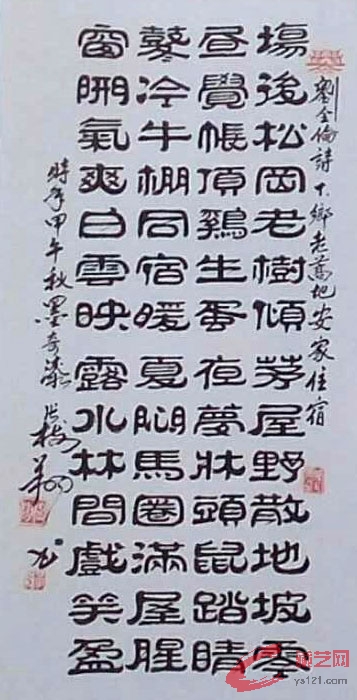 劉金倫詩下鄉老地安家住宿
塲後松岡老樹傾茅屋野散地坡零
昼覺帳頂鷄生蛋夜夢牀頭鼠踏睛
鼕冷牛棚同宿暖夏悶馬圈滿屋腥
窗開氣爽白雲映露水林間戲笑盈
時年甲午秋墨奇齋
ys121.com